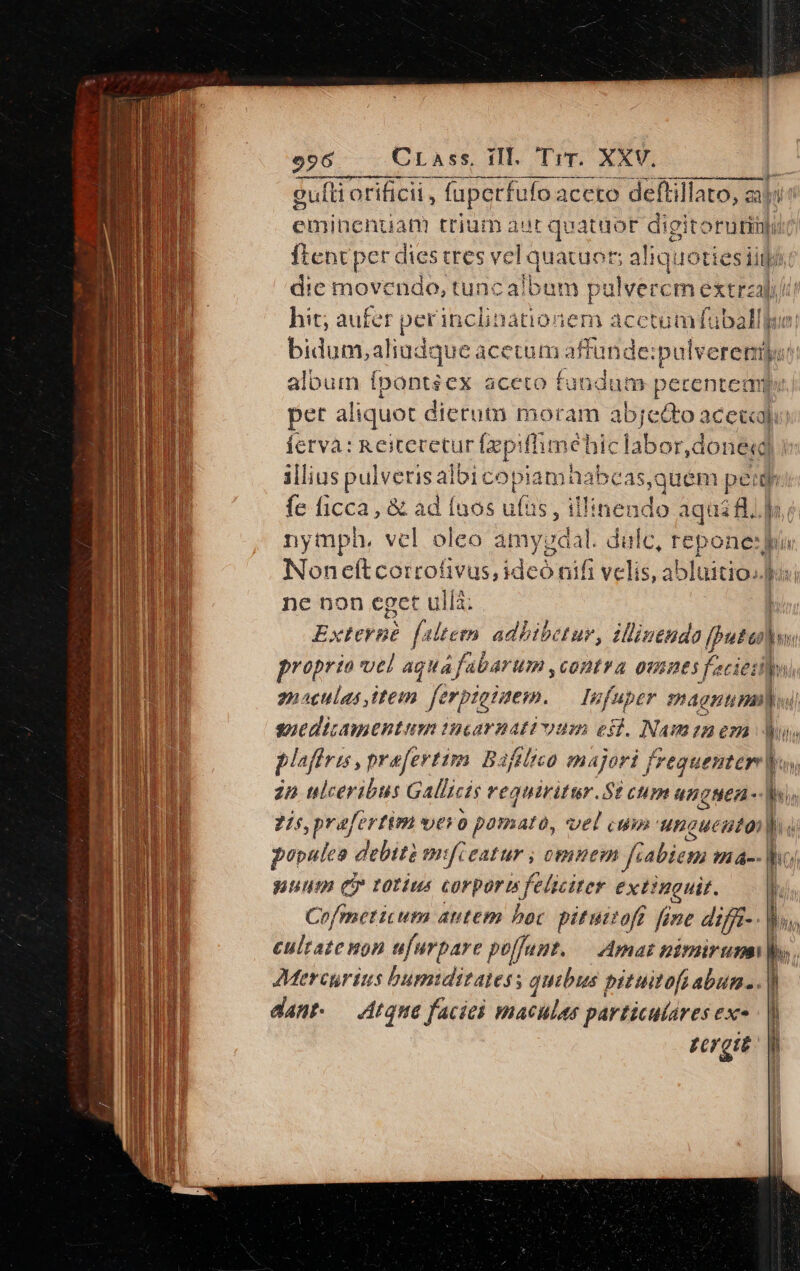 996 CLASS. III. TIT. XXV.
gusti orificii, superfuso aceto destillato, ad
eminentiam trium aut quatuor digitorum
stent per dies tres vel quatuor; aliquoties in
die movendo, tunc album pulverem extra
hit; aufer per inclinationem acetum
bidum, aliudque acetum affunde: pulverem
album spontè ex aceto fundum petentem
per aliquot dierum moram abjecto aceto
serva: Reiteretur sæpissimè hic labor, donec
illius pulveris albi copiam habeas, quem per
se sicca, & ad suos usus, illinendo aquâ fl.
nymph. vel oleo amygdal. dulc, repone:
Non est corrosivus, ideò nisi velis, ablutio
ne non eget ullâ.
Externè saltem adhibetur, illinendo sputo
proprio vel aquâ fabarum, contra omnes faciei
maculas, item serpiginem. Insuper magnum
medicamentum incarnativum est. Nam in em
plastris, præsertim Basilico majori frequenter
in ulceribus Gallicis requiritur. Si cum unguen-
tis, præsertim verò pomato, vel cum unguento
populeo debitè misceatur, omnem scabiem ma-
nuum & totius corporis feliciter extinguit.
Cosmeticum autem hoc pituitosi sine diffi-
cultate non usurpare possunt. Amat nimirum
Mercurius humiditates; quibus pituitosi abun-
dant. Atque faciei maculas particulares ex-
tergit